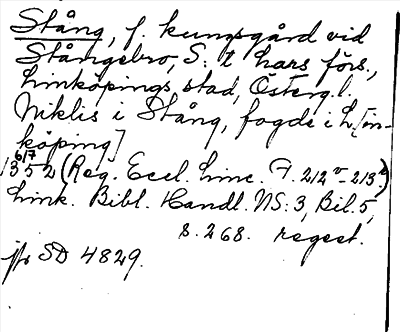 Stång, f. kungsgård vid
Stångebro, S:t Lars förs.,
Linköpings stad, Österg. l.
Niklis i Stång, fogde i L[in-
köping]
6/7
1352 (Reg. Eccl. Linc. F. 212v-213r)
Link. Bibl. Handl. NS:3, Bil. 5,
s. 268. regest.
jfr SD 4829.